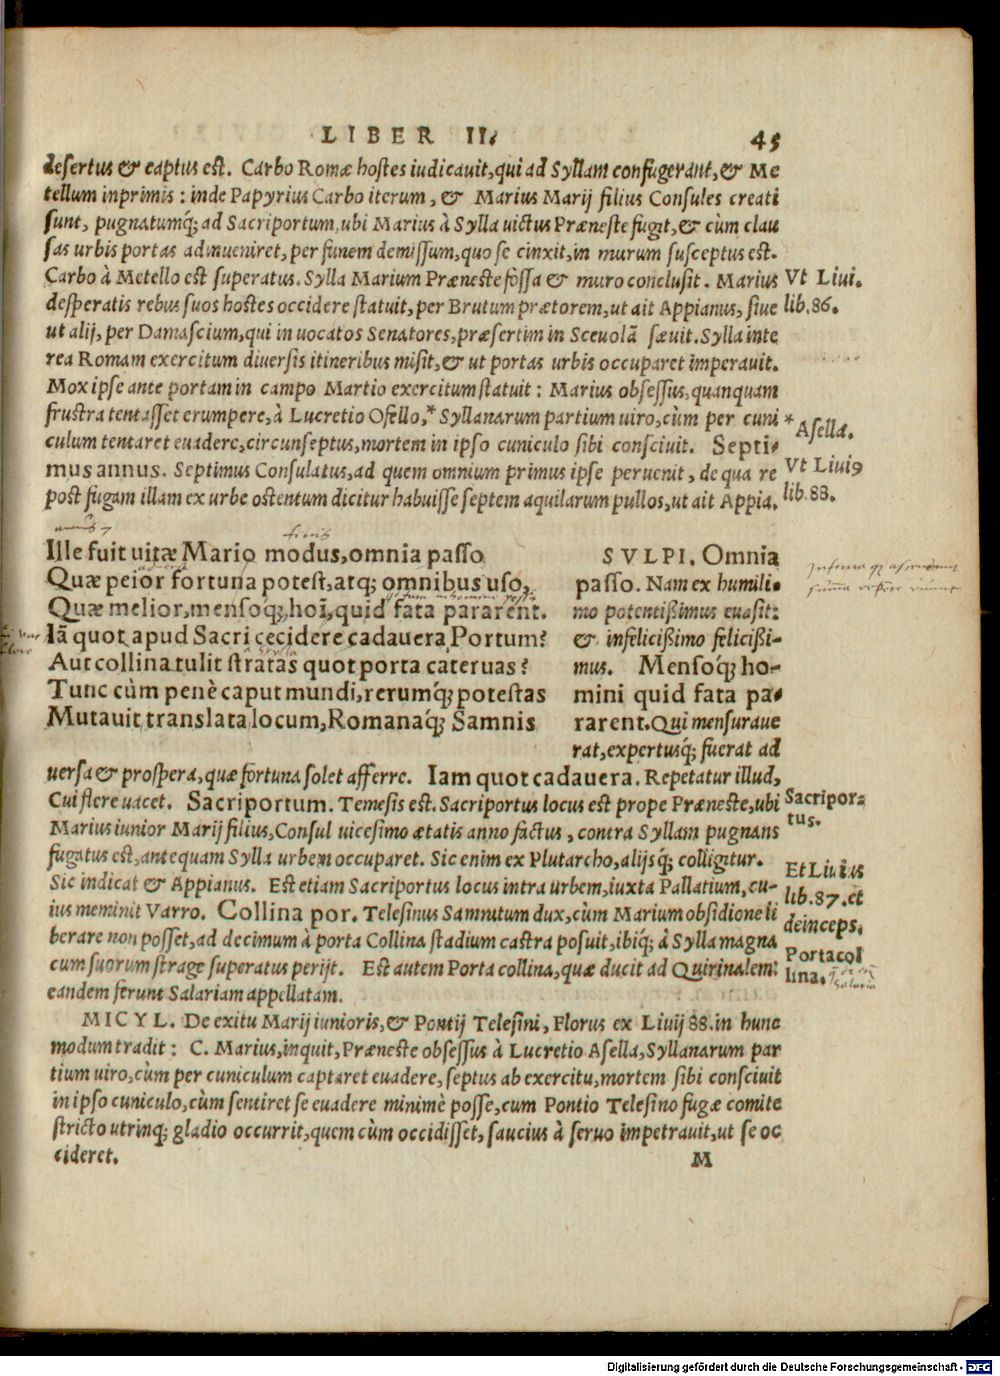 LIBER II. 45
desertus & captus est. Carbo Romæ hostes iudicauit, qui ad Syllam confugerant, & Me
tellum inprimis: inde Papyrius Carbo iterum, & Marius Marij filius Consules creati
sunt, pugnatumq́; ad Sacriportum, ubi Marius à Sylla uictus Præneste fugit, & cùm clau
sas urbis portas adinueniret, per funem demissum, quo se cinxit, in murum susceptus est.
Carbo à Metello est superatus. Sylla Marium Præneste fossa & muro conclusit. Marius
desperatis rebus suos hostes occidere statuit, per Brutum prætorem, ut ait Appianus, siue
ut alij, per Damascium, qui in uocatos Senatores, præsertim in Sceuolã sæuit. Sylla inte
rea Romam exercitum diuersis itineribus misit, & ut portas urbis occuparet imperauit.
Mox ipse ante portam in campo Martio exercitum statuit: Marius obsessus, quanquam
frustra tentasset erumpere, à Lucretio Ofello,* Syllanarum partium uiro, cùm per cuni
culum tentaret euadere, circunseptus, mortem in ipso cuniculo sibi consciuit. Septi-
mus annus. Septimus Consulatus, ad quem omnium primus ipse peruenit, de qua re
post fugam illam ex urbe ostentum dicitur habuisse septem aquilarum pullos, ut ait Appia.
Vt Liui.
lib. 86.
* Asella.
Vt Liuiꝯ
lib. 88.
finis
Ille fuit uitæ Mario modus, omnia passo
Quæ peior fortuna potest, atq; omnibus uso,
Quæ melior, mensoq́;, hoĩ, quid fata pararent.
Iã quot apud Sacri cecidere cadauera Portum?
Aut collina tulit stratas quot porta cateruas?
Tunc cùm penè caput mundi, rerumq́; potestas
Mutauit translata locum, Romanaq́; Samnis
SVLPI. Omnia
passo. Nam ex humili-
mo potentißimus euasit:
& infelicißimo felicißi-
mus. Mensoq́; ho-
mini quid fata pa-
rarent. Qui mensuraue
rat, expertusq́; fuerat ad
uersa & prospera, quæ fortuna solet afferre. Iam quot cadauera. Repetatur illud,
Cui flere uacet. Sacriportum. Temesis est. Sacriportus locus est prope Præneste, ubi
Marius iunior Marij filius, Consul uicesimo ætatis anno factus, contra Syllam pugnans
fugatus est, antequam Sylla urbem occuparet. Sic enim ex Plutarcho, alijsq́; colligitur.
Sic indicat & Appianus. Est etiam Sacriportus locus intra urbem, iuxta Pallatium, cu-
ius meminit Varro. Collina por. Telesinus Samnitum dux, cùm Marium obsidione li
berare non posset, ad decimum à porta Collina stadium castra posuit, ibiq́; à Sylla magna
cum suorum strage superatus perijt. Est autem Porta collina, quæ ducit ad Quirinalem:
eandem ferunt Salariam appellatam.
Sacripor-
tus.
Et Liuius
lib. 87. et
deinceps.
Porta col
lina.
MICYL. De exitu Marij iunioris, & Pontij Telesini, Florus ex Liuij 88. in hunc
modum tradit: C. Marius, inquit, Præneste obsessus à Lucretio Asella, Syllanarum par
tium uiro, cùm per cuniculum captaret euadere, septus ab exercitu, mortem sibi consciuit
in ipso cuniculo, cùm sentiret se euadere minimè posse, cum Pontio Telesino fugæ comite
stricto utrinq; gladio occurrit, quem cùm occidisset, saucius à seruo impetrauit, ut se oc
cideret.
M
Digitalisierung gefördert durch die Deutsche Forschungsgemeinschaft - DFG